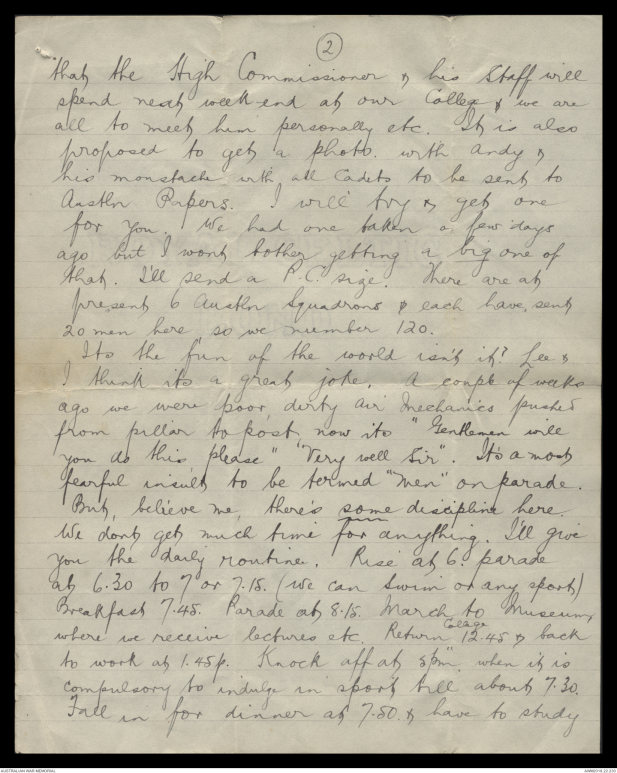 2
that the High Commissioner & his Staff will
spend next week-end at our College & we are
all to meet him personally etc. It is also
proposed to get a photo. with Andy &
his monstache with all Cadets to be sent to
Austln Papers. I will try & get one
for you. We had one taken a few days
ago but I wont bother getting a big one of
that. I'll send a P.C. size. There are at
present 6 Austln Squadrons & each have sent
20 men here so we number 120.
Its the fun of the world isn't it? Lee &
I think its a great joke. A couple of weeks
ago we were poor, dirty air Mechanics pushed
from pillar to post, now its "Gentlemen will
you do this please" "Very well Sir". It's a most
fearful insult to be termed "men" on parade.
But, believe me, there's some discipline here.
We dont get much time for anything. I'll give
you the daily routine. Rise at 6. parade
at 6.30 to 7 or 7.15. (We can swim or any sport)
Breakfast 7.45. Parade at 8.15. March to Museum,
where we receive lectures etc. Return College 12.45 & back
to work at 1.45p. Knock off at 5pm. when it is
compulsory to indulge in sport till about 7.30.
Fall in for dinner at 7.50. & have to study
AUSTRALIAN WAR MEMORIAL